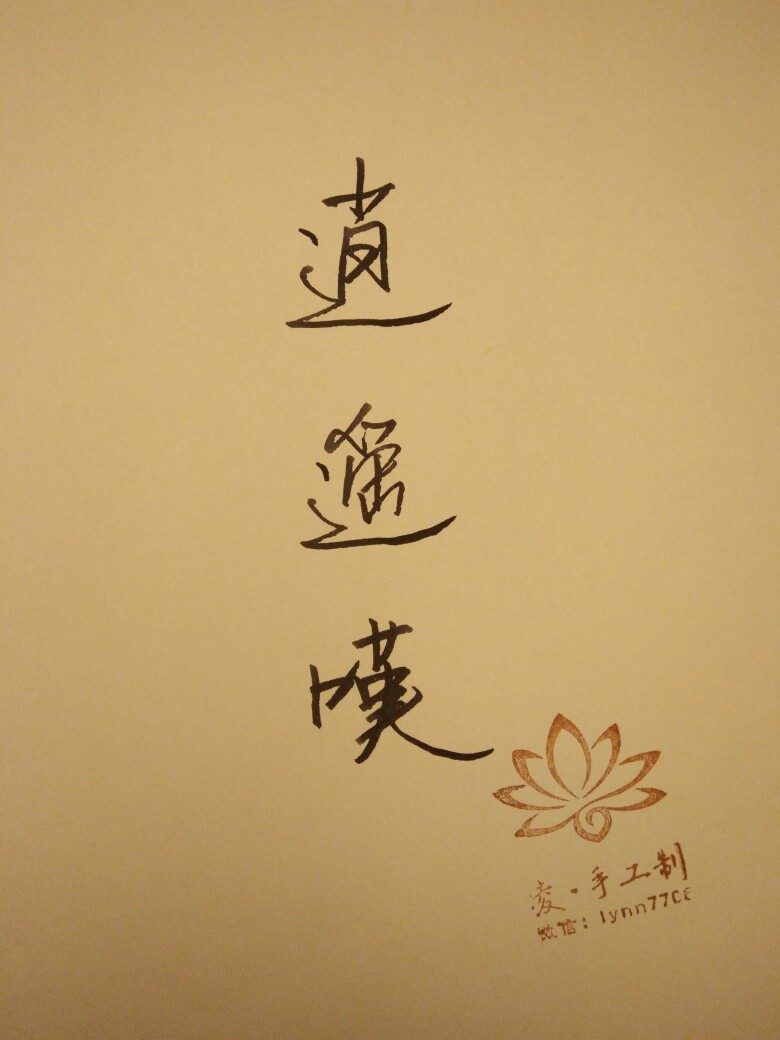 逍
遥
嘆
凌·手工制
微信：lynn77CE